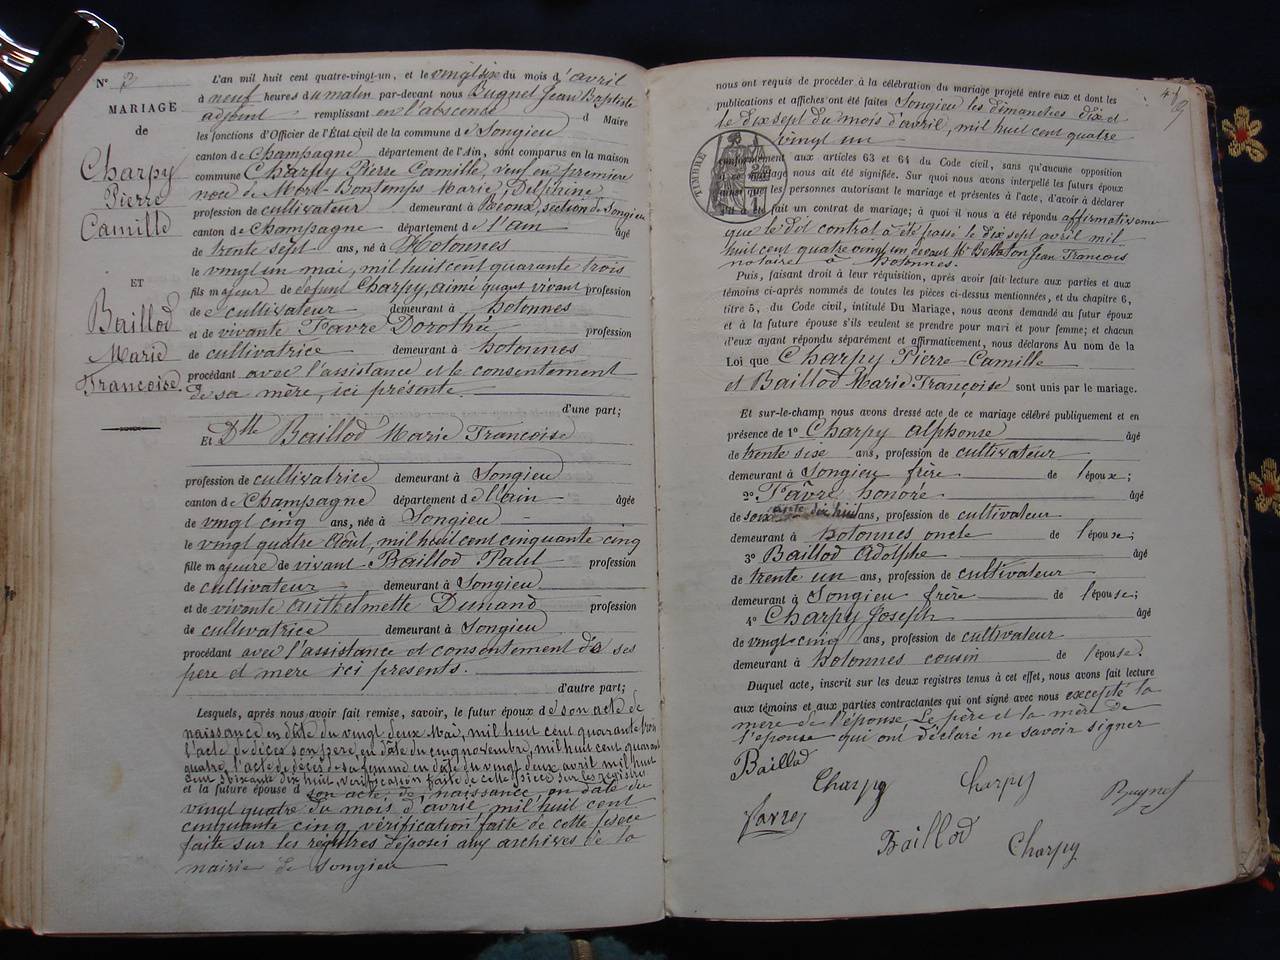 N° 2
MARIAGE
de
Charpy
Pierre
Camille
ET
Baillod
Marie
Françoise
L'an mil huit cent quatre-vingt-un, et le vingt six du mois d'avril
à neuf heures du matin par-devant nous Bugnet Jean Baptiste
adjoint remplissant en l'abscence d Maire
les fonctions d'Officier de l'État civil de la commune de Songieu
canton de Champagne département de l'Ain, sont comparus en la maison
commune Charpy Pierre Camille, veuf en premiere
noce de Mert-Bontemps Marie, Delphine
profession de cultivateur demeurant à Bioux, section de Songieu
canton de Champagne département de l'ain âgé
de trente sept ans, né à Hotonnes
le vingt un mai, mil huit cent quarante trois
fils majeur de defunt Charpy, aimé quant vivant profession
de cultivateur demeurant à hotonnes
et de vivante Favre Dorothé profession
de cultivatrice demeurant à hotonnes
procédant avec l'assistance et le consentement
de sa mère, ici présente.
d'une part;
Et Dlle Baillod Marie Francoise
profession de cultivatrice demeurant à Songieu
canton de Champagne département de l'ain âgée
de vingt cinq ans, née à Songieu
le vingt quatre Août, mil huit cent cinquante cinq
fille majeure de vivant Baillod Paul profession
de cultivateur demeurant à Songieu
et de vivante Dumand profession
de cultivatrice demeurant à Songieu
procédant avec l'assistance et consentement de ses
père et mère ici présents.
d'autre part;
Lesquels, après nous avoir fait remise, savoir, le futur époux de son acte de
naissance en date du vingt deux Mai, mil huit cent quarante trois
l'acte de décès son père, en date du cinq novembre, mil huit cent quarante
quatre, l'acte de décès de sa femme en date du vingt deux avril mil huit
cent soixante dix huit, vérification faite de cette pièce sur les registres
et la future épouse d son acte de naissance en date du
vingt quatre du mois d'avril mil huit cent
cinquante cinq, vérification faite de cette piece
faite sur les registres déposés aux archives de la
mairie de Songieu
nous ont requis de procéder à la célébration du mariage projeté entre eux et dont les
publications et affiches ont été faites Songieu les dimanches dix et
le dix sept du mois d'avril, mil huit cent quatre
vingt un
TIMBRE
conformément aux articles 63 et 64 du Code civil, sans qu'aucune opposition
mariage nous ait été signifiée. Sur quoi nous avons interpellé les futurs époux
ainsi que les personnes autorisant le mariage et présentes à l'acte, d'avoir à déclarer
s'il a été fait un contrat de mariage; à quoi il nous a été répondu affirmativeme
que le dit contrat a été passé le dix sept avril mil
huit cent quatre vingt un devant Me Jean Francois
notaire à hotonnes.
Puis, faisant droit à leur réquisition, après avoir fait lecture aux parties et aux
témoins ci-après nommés de toutes les pièces ci-dessus mentionnées, et du chapitre 6,
titre 5, du Code civil, intitulé Du Mariage, nous avons demandé au futur époux
et à la future épouse s'ils veulent se prendre pour mari et pour femme; et chacun
d'eux ayant répondu séparément et affirmativement, nous déclarons Au nom de la
Loi que Charpy Pierre-Camille
et Baillod Marie-Françoise sont unis par le mariage.
Et sur-le-champ nous avons dressé acte de ce mariage célébré publiquement et en
présence de 1° Charpy alphonse âgé
de trente sixe ans, profession de cultivateur
demeurant à Songieu frère de l'époux;
2° Favre honoré âgé
de soixante dix huit ans, profession de cultivateur
demeurant à hotonnes oncle de l'épouse;
3° Baillod Adolphe âgé
de trente un ans, profession de cultivateur
demeurant à Songieu frère de l'épouse;
4° Charpy Joseph âgé
de vingt-cinq ans, profession de cultivateur
demeurant à hotonnes cousin de l'épouse.
Duquel acte, inscrit sur les deux registres tenus à cet effet, nous avons fait lecture
aux témoins et aux parties contractantes qui ont signé avec nous excepté la
mere de l'épouse Le père et la mère de
l'épouse qui ont déclaré ne savoir signer
Baillod
Charpy
Charpy
Bugnet
favre
Baillod
Charpy